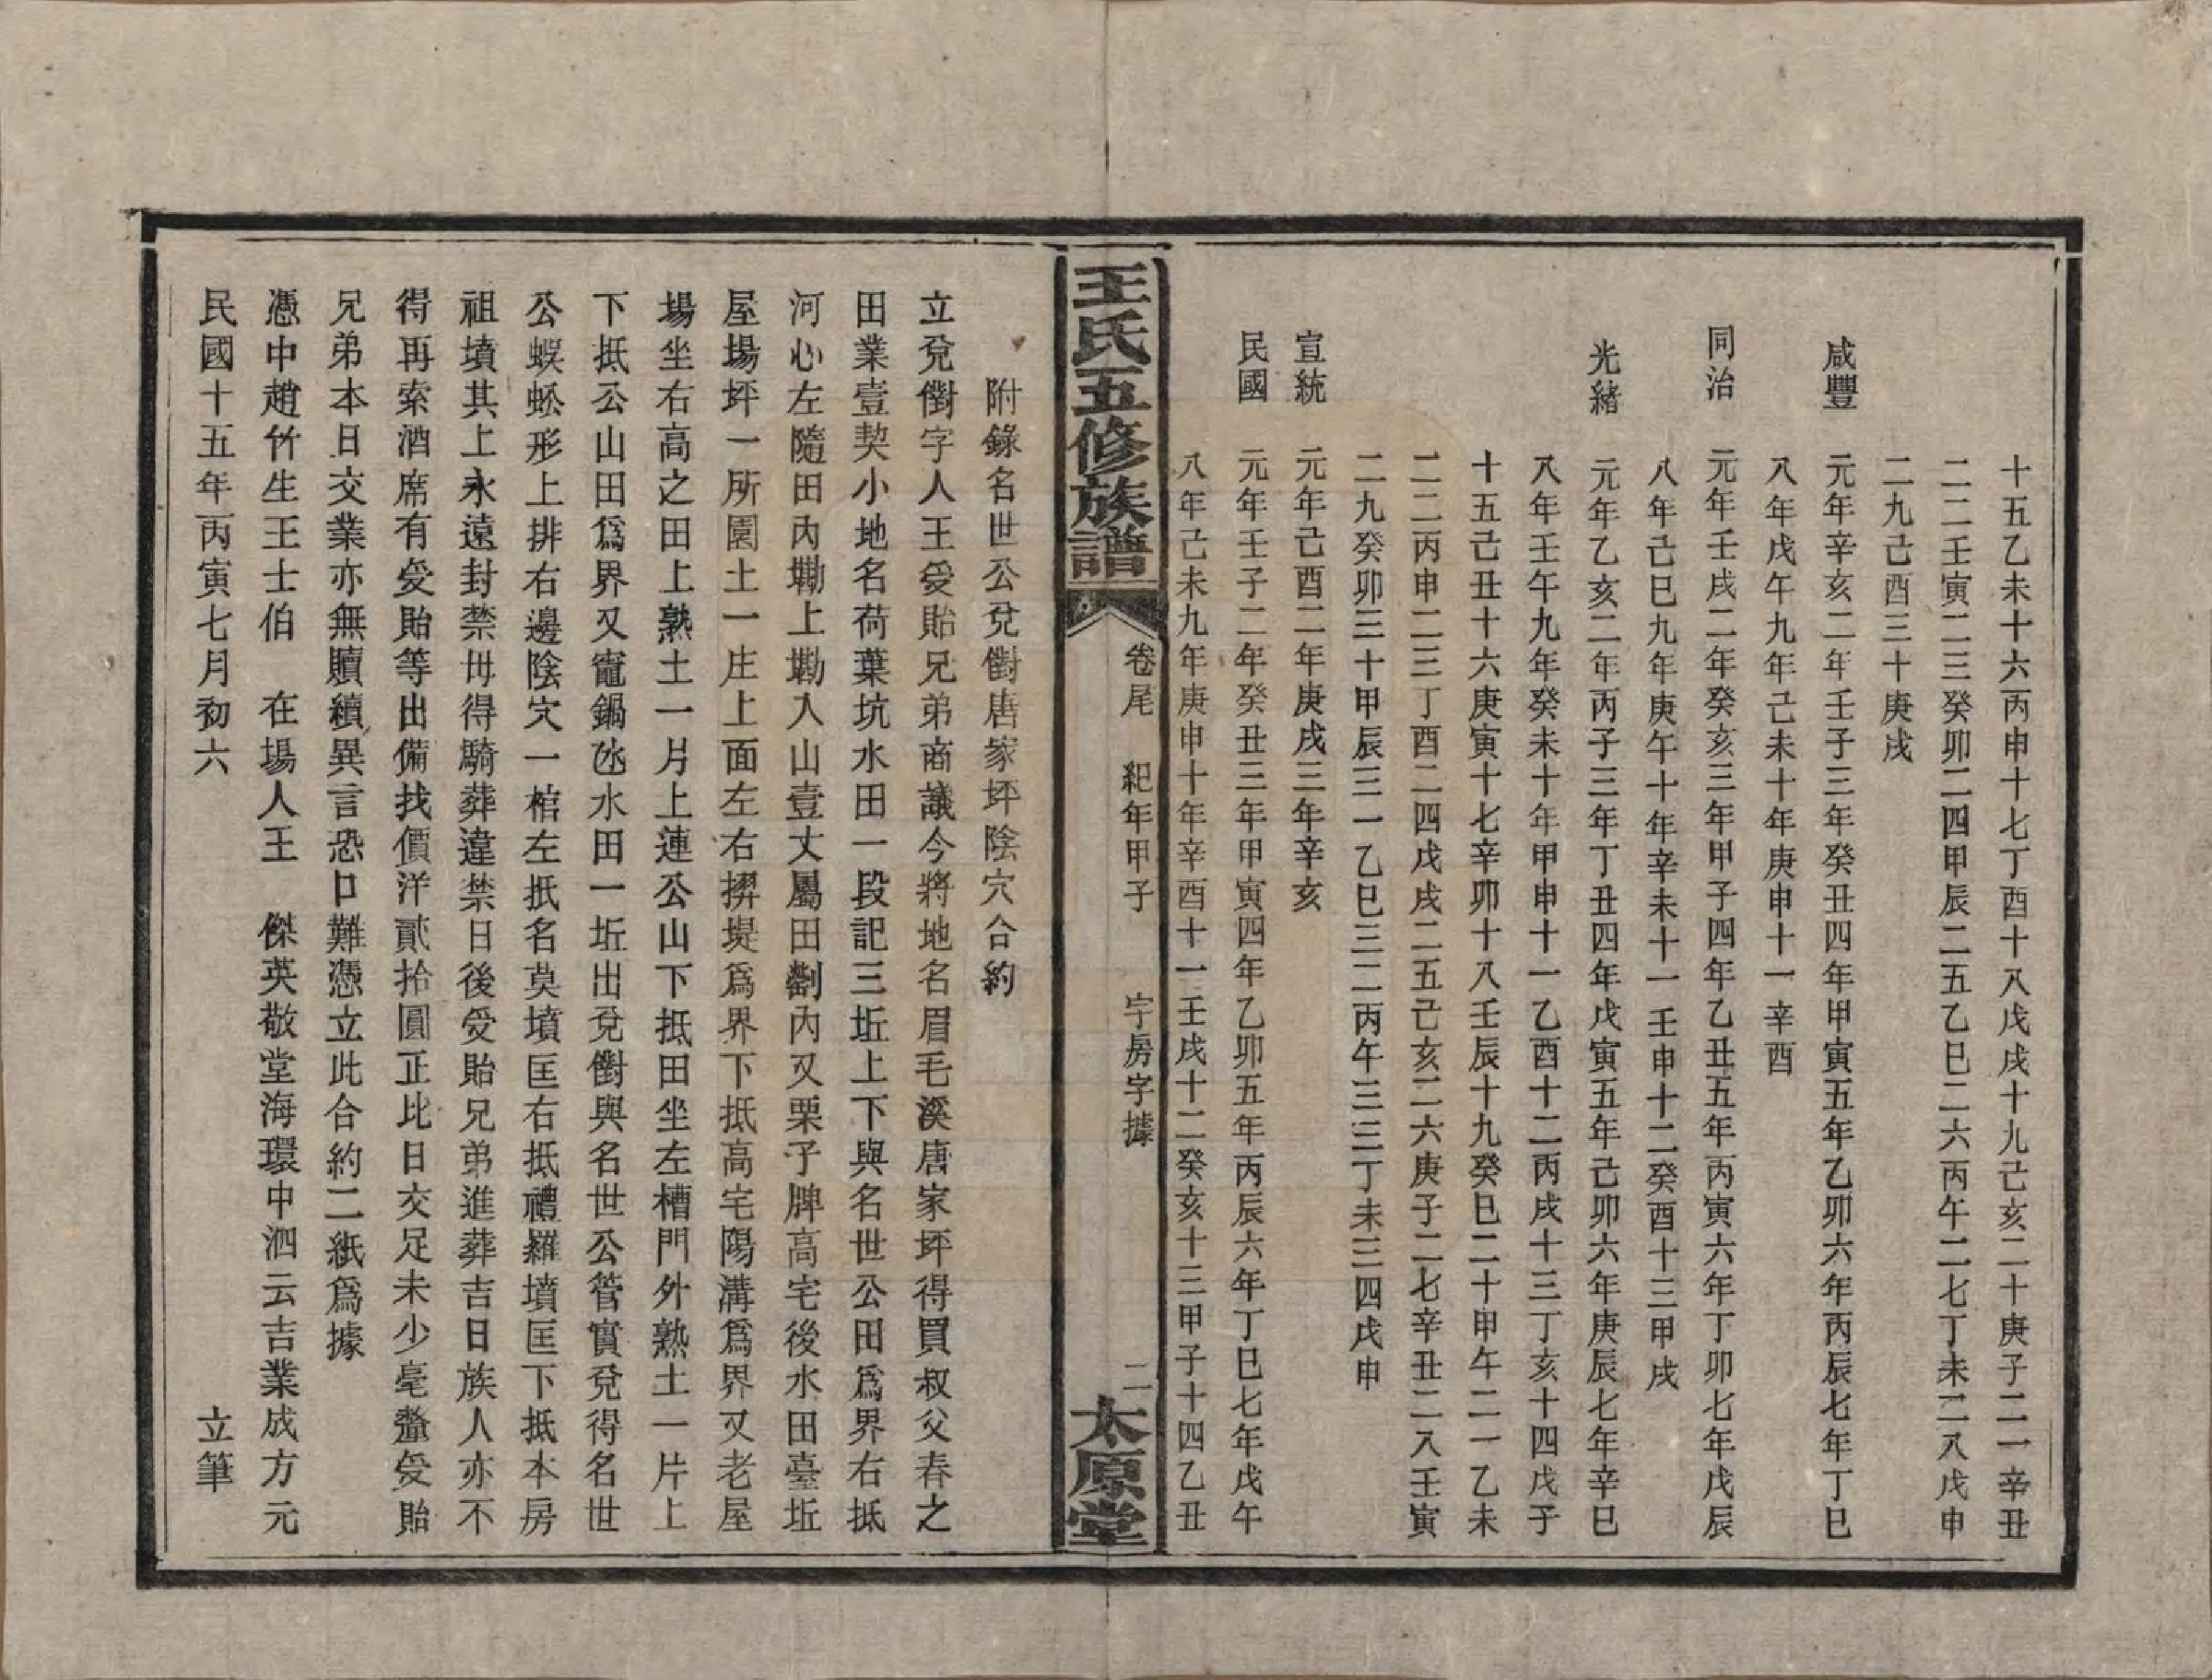 十五乙未十六丙申十七丁酉十八戊戌十九己亥二十庚子二一辛丑
二二壬寅二三癸卯二四甲辰二五乙巳二六丙午二七丁未二八戊申
二九己酉三十庚戌
咸豐 元年辛亥二年壬子三年癸丑四年甲寅五年乙卯六年丙辰七年丁巳
八年戊午九年己未十年庚申十一辛酉
同治 元年壬戌二年癸亥三年甲子四年乙丑五年丙寅六年丁卯七年戊辰
八年己巳九年庚午十年辛未十一壬申十二癸酉十三甲戌
光緒 元年乙亥二年丙子三年丁丑四年戊寅五年己卯六年庚辰七年辛巳
八年壬午九年癸未十年甲申十一乙酉十二丙戌十三丁亥十四戊子
十五己丑十六庚寅十七辛卯十八壬辰十九癸巳二十甲午二一乙未
二二丙申二三丁酉二四戊戌二五己亥二六庚子二七辛丑二八壬寅
二九癸卯三十甲辰三一乙巳三二丙午三三丁未三四戊申
宣統 元年己酉二年庚戌三年辛亥
民國 元年壬子二年癸丑三年甲寅四年乙卯五年丙辰六年丁巳七年戊午
八年己未九年庚申十年辛酉十一壬戌十二癸亥十三甲子十四乙丑
王氏五修族譜 卷尾 紀年甲子 字房字據 二 太原堂
附錄名世公兌儅唐家坪陰穴合約
立兌儅字人王受貽兄弟商議今將地名眉毛溪唐家坪得買叔父春之
田業壹契小地名荷葉坑水田一段記三坵上下與名世公田爲界右抵
河心左隨田內墈上墈入山壹丈屬田劉內又栗子牌高宅後水田臺坵
屋場坪一所園土一庄上面左右摺堤爲界下抵高宅陽溝爲界又老屋
場坐右高之田上熟土一片上連公山下抵田坐左槽門外熟土一片上
下抵公山田爲界又竈鍋氹水田一坵出兌儅與名世公管實兌得名世
公蜈蚣形上排右邊陰穴一棺左抵名莫墳匡右抵禮羅墳匡下抵本房
祖墳其上永遠封禁毋得騎葬違禁日後受貽兄弟進葬吉日族人亦不
得再索酒席有受貽等出備找價洋貳拾圓正比日交足未少毫釐受貽
兄弟本日交業亦無贖續異言恐口難憑立此合約二紙爲據
憑中趙竹生王士伯 在場人王 傑英敬堂海環中泗云吉業成方元
民國十五年丙寅七月初六 立筆